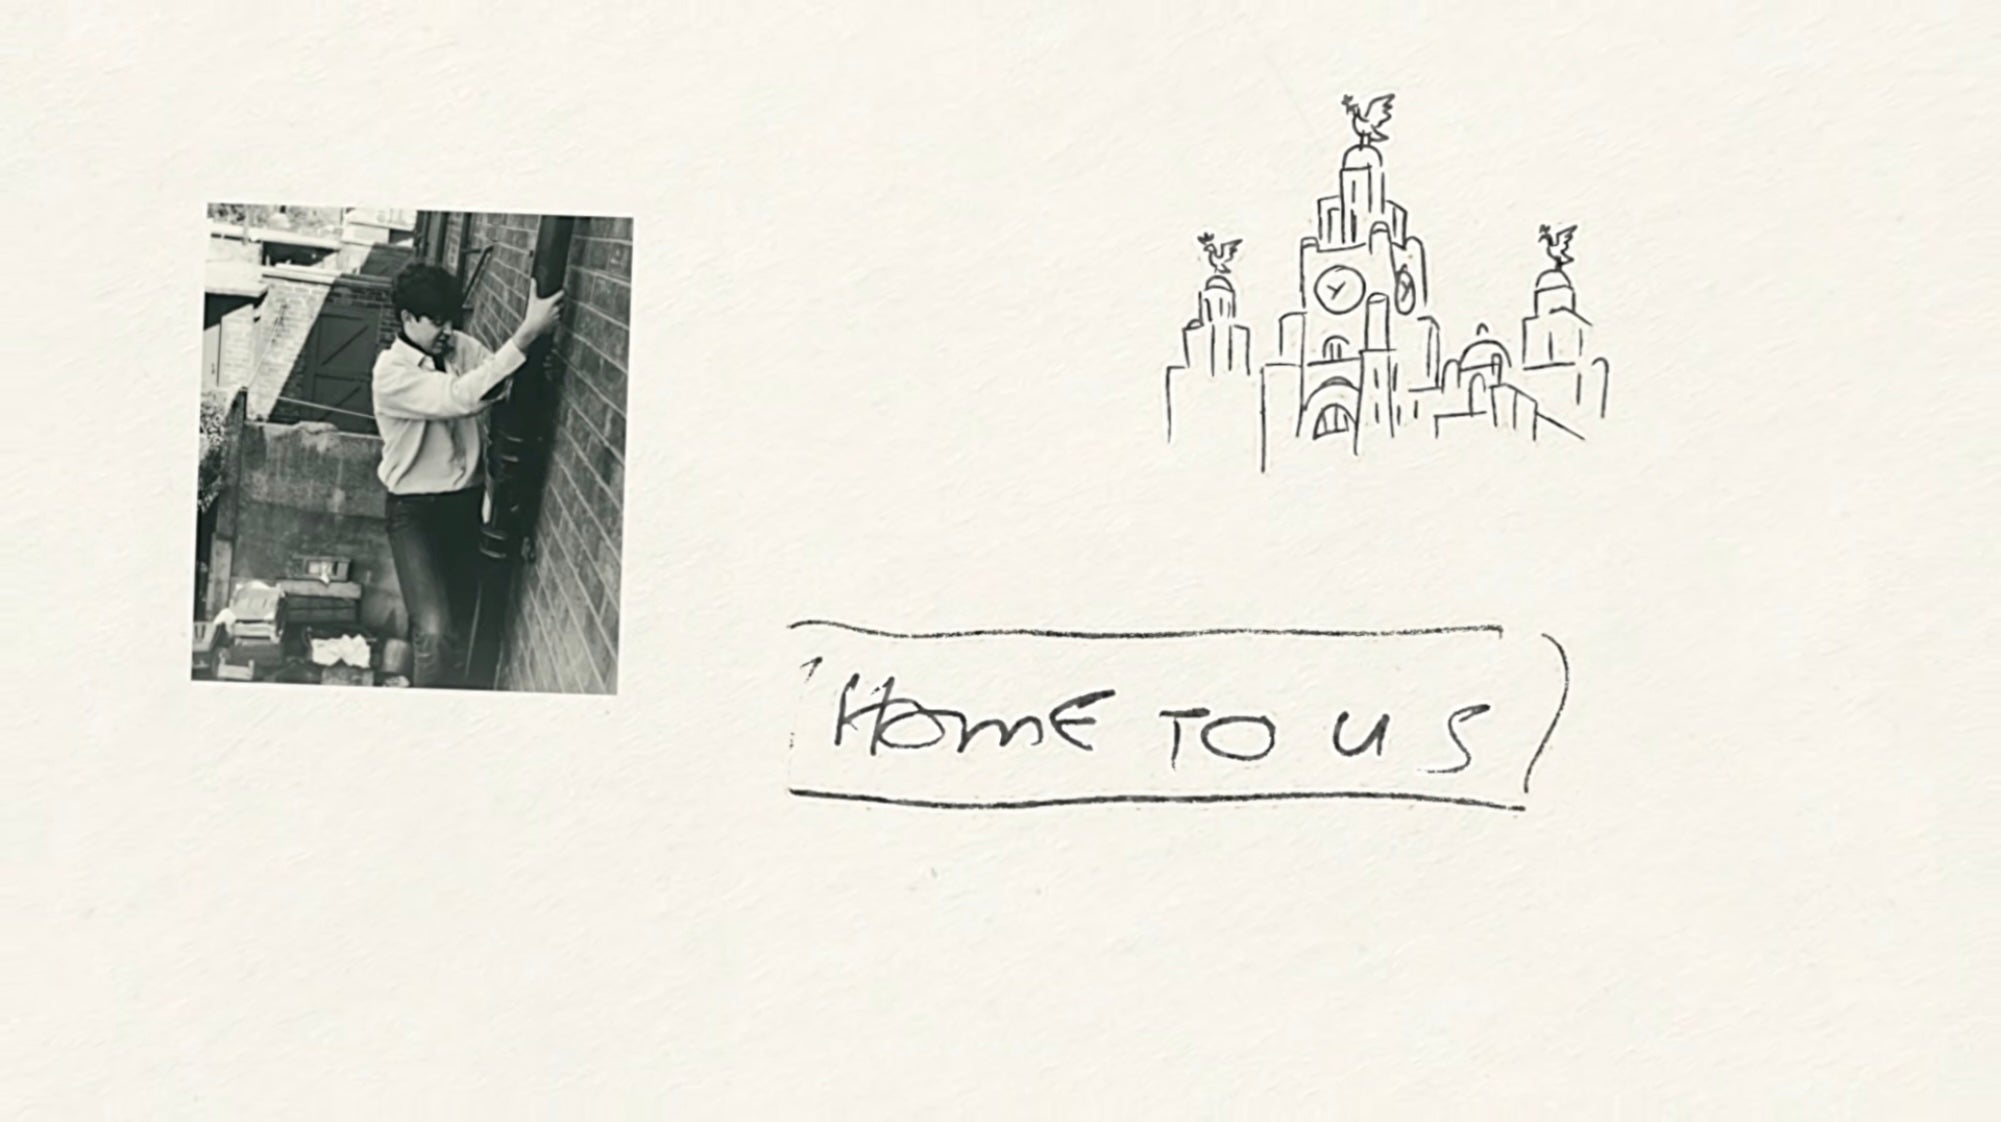 HOME TO US